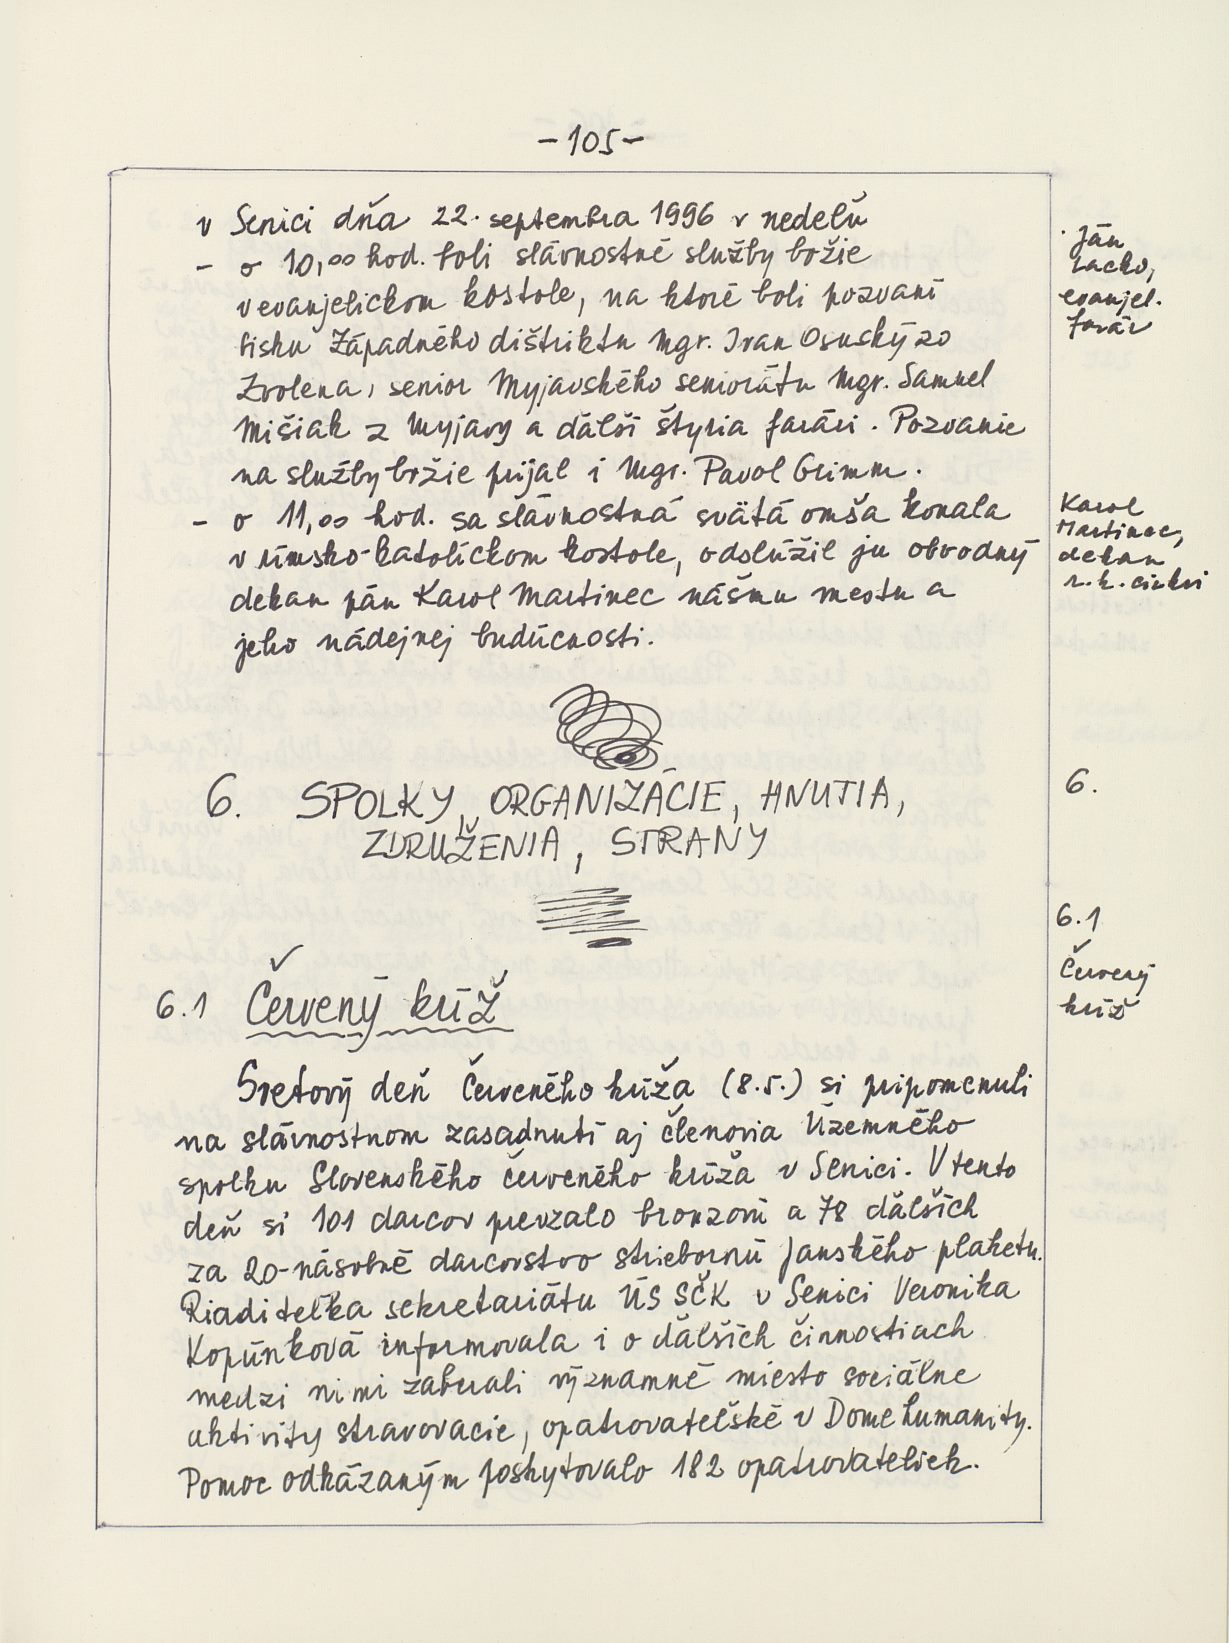 - 105 -
v Senici dňa 22. septembra 1996 v nedeľu
- o 10,00 hod. boli slávnostné služby božie
v evanjelickom kostole, na ktoré boli pozvaní
biskup Západného dištriktu Mgr. Ivan Osuský zo
Zvolena, senior Myjavského seniorátu Mgr. Samuel
Mišiak z Myjavy a ďalší štyria farári. Pozvanie
na služby božie prijal i Mgr. Pavol Grimm.
- o 11,00 hod. sa slávnostná svätá omša konala
v rímsko-katolíckom kostole, odslúžil ju obvodný
dekan pán Karol Martinec nášmu mestu a
jeho nádejnej budúcnosti.
Ján
Lacko,
evanjel.
farár
Karol
Martinec,
dekan
r.k. cirkvi
6. SPOLKY, ORGANIZÁCIE, HNUTIA,
ZDRUŽENIA, STRANY
6.
6.1 Červený kríž
6.1
Červený
kríž
Svetový deň Červeného kríža (8.5.) si pripomenuli
na slávnostnom zasadnutí aj členovia Územného
spolku Slovenského červeného kríža v Senici. V tento
deň si 101 darcov prevzalo bronzovú a 78 ďalších
za 20-násobné darcovstvo striebornú Janského plaketu.
Riaditeľka sekretariátu ÚS SČK v Senici Veronika
Kopúnková informovala i o ďalších činnostiach
medzi nimi zaberali významné miesto sociálne
aktivity stravovacie, opatrovateľské v Dome humanity.
Pomoc odkázaným poskytovalo 182 opatrovateliek.